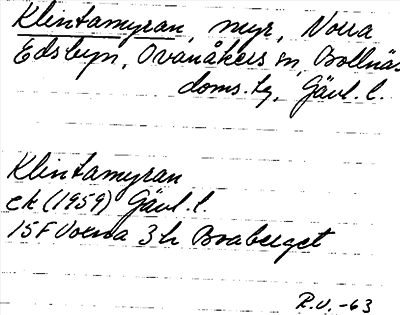 Klintamyran, myr, Norra
Edsbyn, Ovanåkers sn, Bollnäs
doms. tg, Gävl. l.
Klintamyran
ek (1959) Gävl. l.
15F Voxna 3h Braberget
R.U. -63